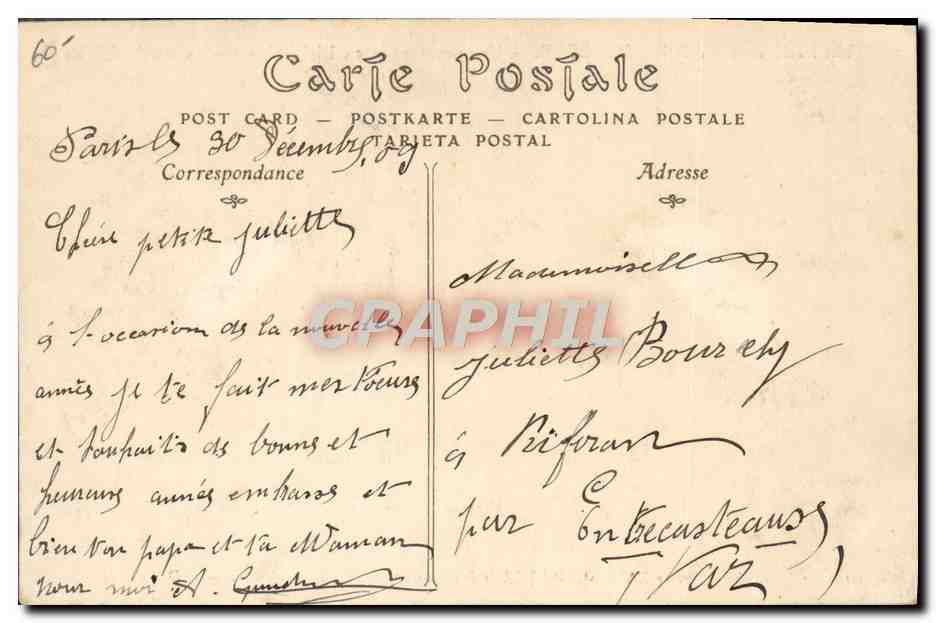 60
Carte Postale
POST CARD — POSTKARTE — CARTOLINA POSTALE
TARJETA POSTAL
Paris le 30 Décembre, 09
Correspondance
Chère petite Juliette
à l'occasion de la nouvelle
année je te fait mes Voeux
et souhaits de bonne et
heureuse année embrasse et
bien ton papa et ta Maman
pour moi A.
Adresse
Mademoiselle
Juliette
à
par Entrecasteaux
Var
CPAPHIL